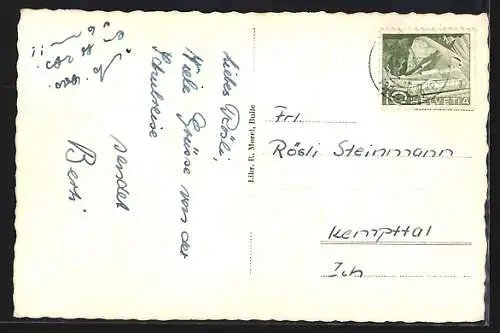 Liebes Rösli,
Viele Grüsse von der
Schulreise
sendet
Berti
Libr. E. Morel, Bulle
HELVETIA
Frl.
Rösli Steinmann
Kempttal
Zch